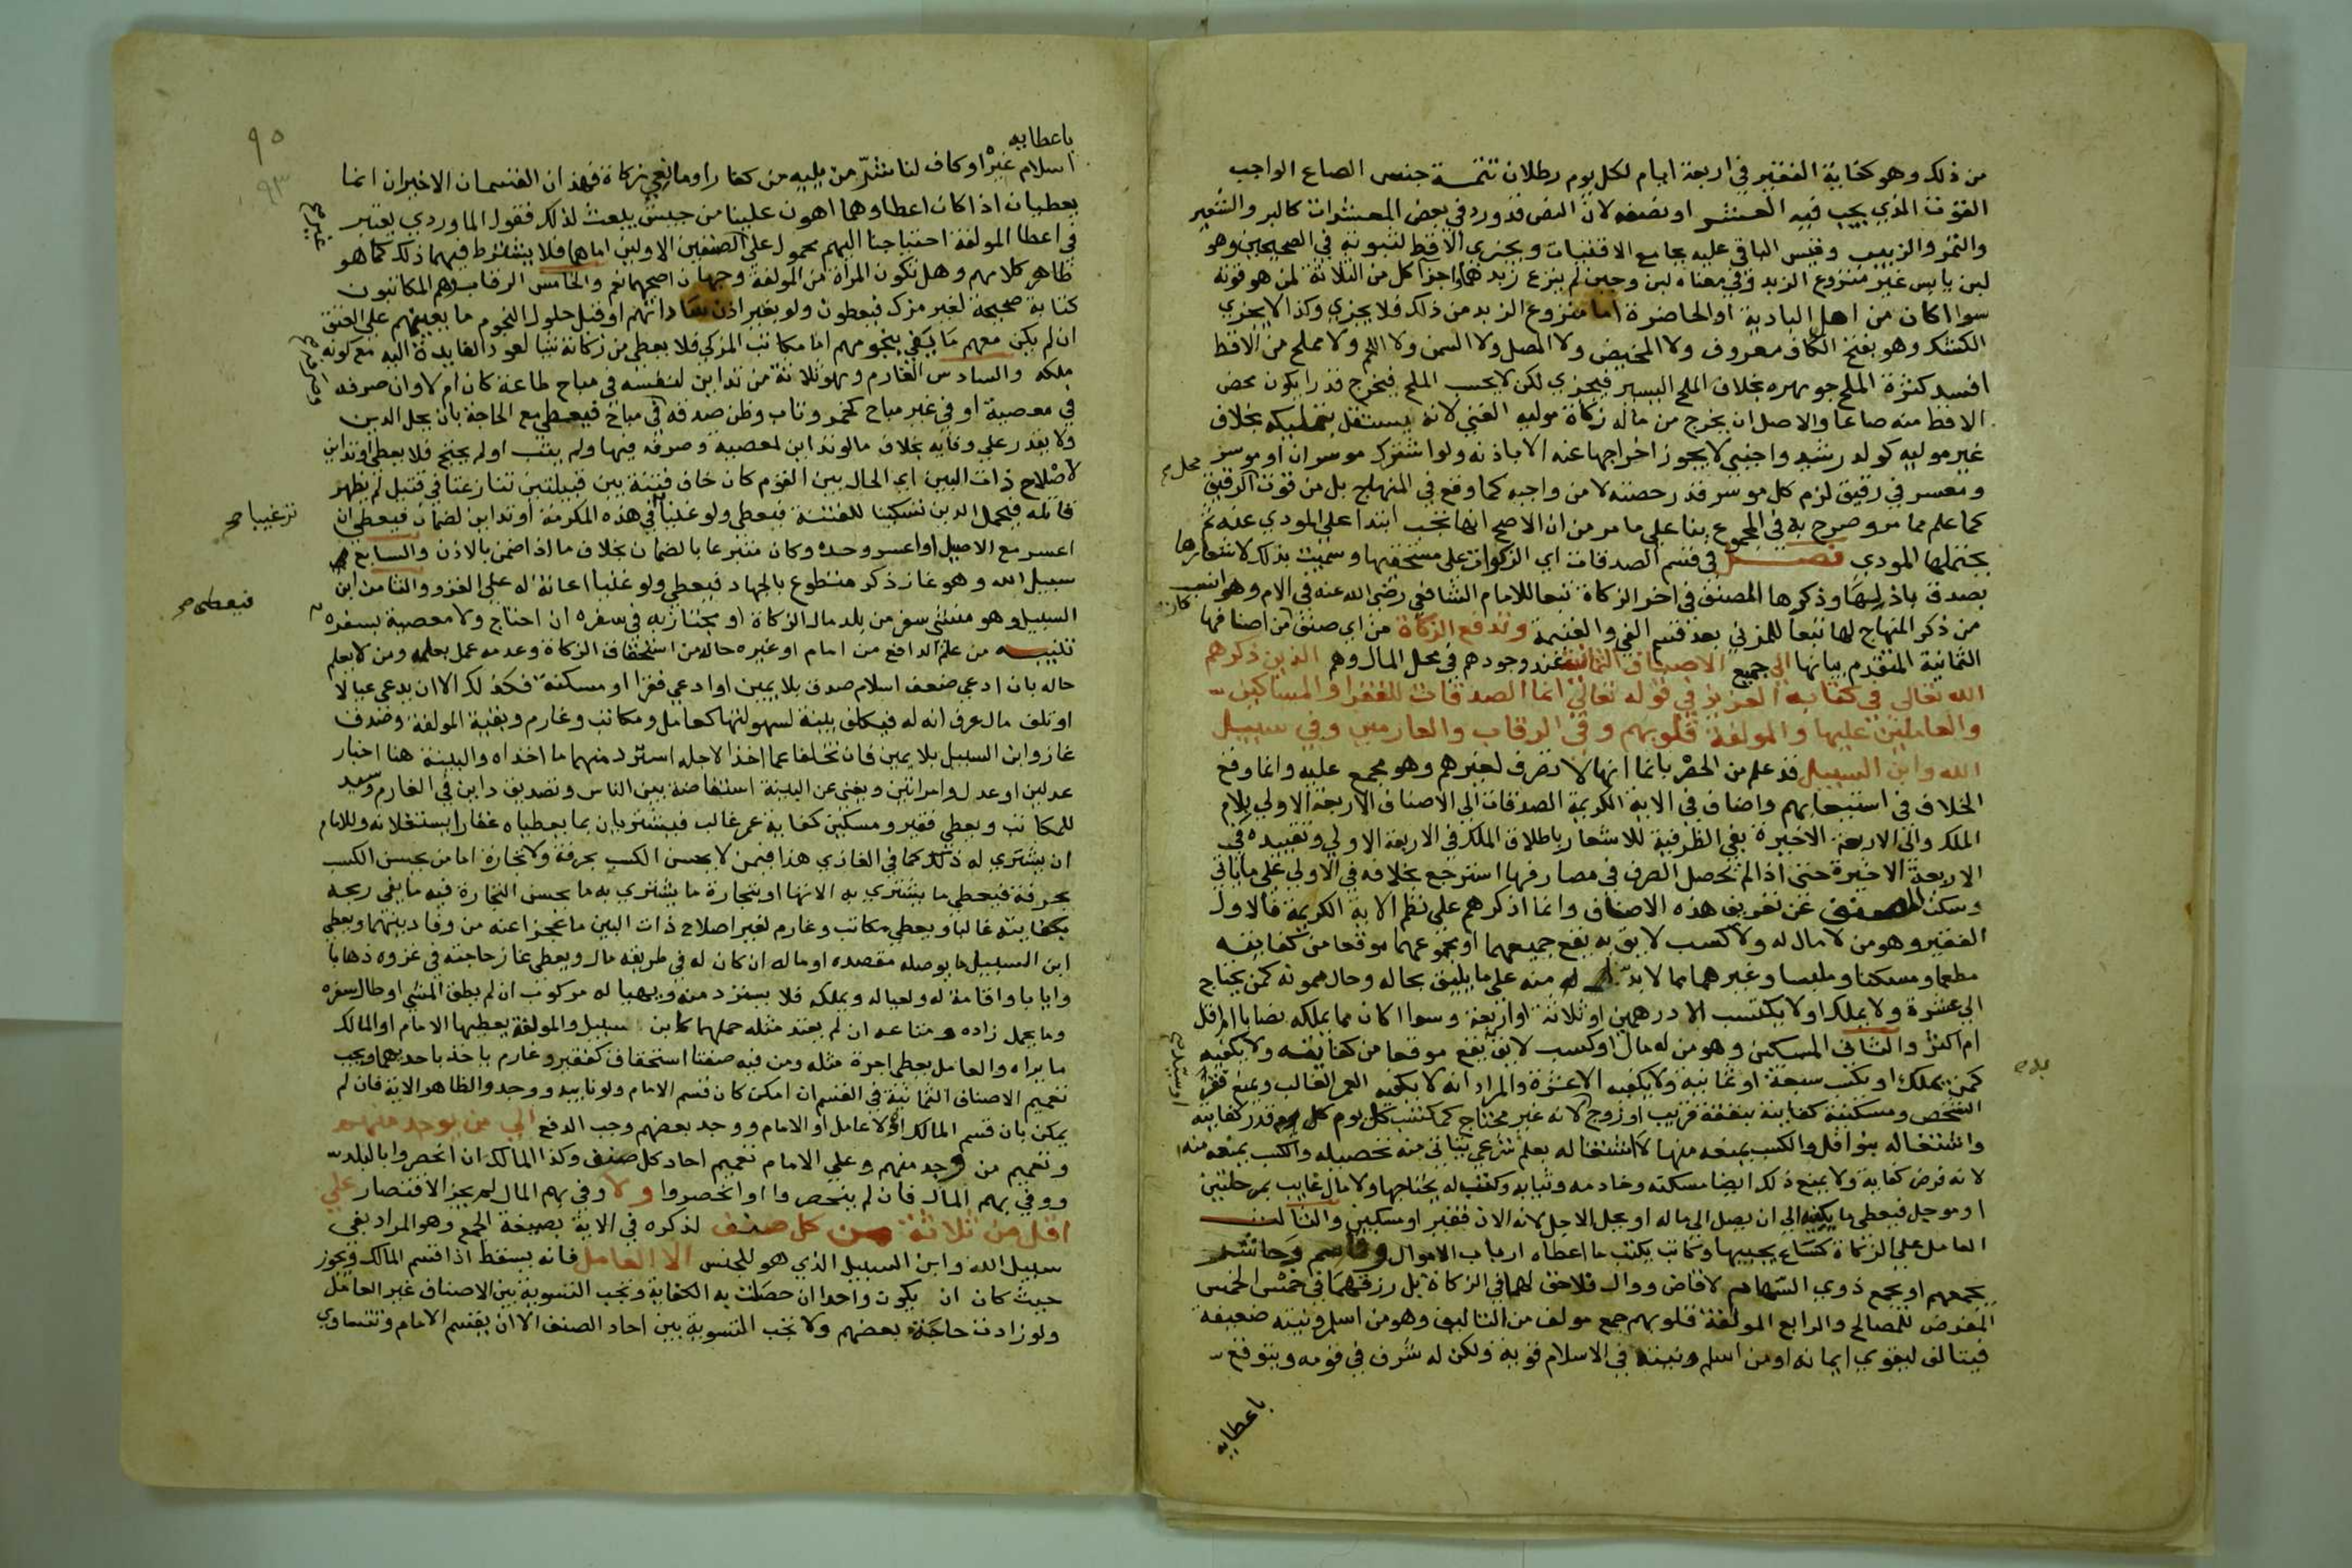 من ذلك وهو كفاية الفقير في اربعة ايام لكل يوم رطلان تتمة جنس الصاع الواجب
القوت الذي يجب فيه العشر او نصفه لان النص قد ورد في بعض المعشرات كالبر والشعير
والتمر والزبيب وقيس الباقي عليه بجامع الاقتيات ويجزي الاقط لثبوته في الصحيحين وهو
لبن يابس غير منزوع الزبد وفي معناه لبن وجبن لم ينزع زبدهما واجزا كل من الثلاثة لمن هو قوته
سوا اكان من اهل البادية او الحاضرة اما منزوع الزبد من ذلك فلا يجزي وكذا لا يجزي
الكشك وهو بفتح الكاف معروف ولا المخيض ولا المصل ولا السمن ولا اللحم ولا مملح من الاقط
افسد كثرة الملح جوهره بخلاف الملح اليسير فيجزي لكن لا يحسب الملح فيخرج قدرا يكون محض
الاقط منه صاعا والاصل ان يخرج من ماله زكاة موليه الغني لانه يستقل بتمليكه بخلاف
غير موليه كولد رشيد واجنبي لا يجوز اخراجها عنه الا باذنه ولو اشترك موسران او موسر
ومعسر في رقيق لزم كل موسر قدر حصته لا من واجبه كما وقع في المنهاج بل من قوت الرقيق
محل
كما علم مما مر وصرح به في المجموع بنا على ما مر من ان الاصح انها تجب ابتدا على المودي عنه ثم
يتحملها المودي فصل في قسم الصدقات اي الزكوات على مستحقيها وسميت بذلك لاشعارها
بصدق باذلها وذكرها المصنف في اخر الزكاة تبعا للامام الشافعي رضى الله عنه في الام وهو انسب
من ذكر المنهاج لها تبعا للمزني بعد قسم الفي والغنيمة وتدفع الزكاة من اي صنف كان من اصنافها
الثمانية المتقدم بيانها الى جميع الاصناف الثمانية عند وجودهم في محل المال وهم الذين ذكرهم
الله تعالى في كتابه العزيز في قوله تعالى انما الصدقات للفقرا والمساكين
والعاملين عليها والمولفة قلوبهم وفي الرقاب والغارمين وفي سبيل
الله وابن السبيل قد علم من الحصر بانما انها لا تصرف لغيرهم وهو مجمع عليه وانما وقع
الخلاف في استيعابهم واضاف في الاية الكريمة الصدقات الى الاصناف الاربعة الاولى بلام
الملك والى الاربعة الاخيرة بفي الظرفية للاشعار باطلاق الملك في الاربعة الاولى وتقييده في
الاربعة الاخيرة حتى اذا لم يحصل الصرف في مصارفها استرجع بخلافه في الاولى على ما ياتي
وسكت المصنف عن تعريف هذه الاصناف وانما اذكرهم على نظم الاية الكريمة فالاول
الفقير وهو من لا مال له ولا كسب لايق به يقع جميعهما او مجموعهما موقعا من كفايته
مطعما ومسكنا وملبسا وغيرهما مما لا بد له منه على ما يليق بحاله وحال ممونه كمن يحتاج
الى عشرة ولا يملك او لا يكتسب الا درهمين او ثلاثة او اربعة وسوا اكان مما يملكه نصابا ام اقل
ام اكثر والثاني المسكين وهو من له مال او كسب لايق يقع موقعا من كفايته ولا يكفيه
كمن يملك او يكتسب سبعة او ثمانية ولا يكفيه الا عشرة والمراد انه لا يكفيه العمر الغالب ويمنع فقر
الشخص ومسكنته كفايته بنفقة قريب او زوج لانه غير محتاج كمكتسب كل يوم قدر كفايته
واشتغاله بنوافل والكسب يمنعه منها لا اشتغاله بعلم شرعي يتاتى منه تحصيله والكسب يمنعه منه
لانه فرض كفاية ولا يمنع ذلك ايضا مسكنه وخادمه وثيابه وكتب له يحتاجها ولا مال غايب بمرحلتين
او موجل فيعطى ما يكفيه الى ان يصل الى ماله او يحل الاجل لانه الان فقير او مسكين والثالث
العامل على الزكاة كساع يجبيها وكاتب يكتب ما اعطاه ارباب الاموال وقاسم وحاشر
يجمعهم او يجمع ذوي السهام لا قاض ووال فلا حق لهما في الزكاة بل رزقهما في خمس الخمس
المفروض للمصالح والرابع المولفة قلوبهم جمع مولف من التاليف وهو من اسلم ونيته ضعيفة
فيتالف ليقوى ايمانه او من اسلم ونيته في الاسلام قوية ولكن له شرف في قومه ويتوقع
باعطايه
٩٥
٩٣
باعطايه
اسلام غيره او كاف لنا شر من يليه من كفار او مانعي زكاة فهذان القسمان الاخيران انما
يعطيان اذا كان اعطاوهما اهون علينا من جيش يبعث لذلك فقول الماوردي يعتبر
في اعطا المولفة احتياجنا اليهم محمول على الصنفين الاولين اما هما فلا يشترط فيهما ذلك كما هو
ظاهر كلامهم وهل تكون المراة من المولفة وجهان اصحهما نعم والخامس الرقاب وهم المكاتبون
كتابة صحيحة لغير مزك فيعطون ولو بغير اذن ساداتهم او قبل حلول النجوم ما يعينهم على العتق
ان لم يكن معهم ما يفي بنجومهم اما مكاتب المزكي فلا يعطى من زكاته شيا لعود الفايدة اليه مع كونه
ملكه والسادس الغارم وهو ثلاثة من تداين لنفسه في مباح طاعة كان ام لا وان صرفه
في معصية او في غير مباح كخمر وتاب وظن صدقه في مباح فيعطى مع الحاجة بان يحل الدين
ولا يقدر على وفايه بخلاف ما لو تداين لمعصية وصرفه فيها ولم يتب او لم يحتج فلا يعطى او تداين
لاصلاح ذات البين اي الحال بين القوم كان خاف فتنة بين قبيلتين تنازعتا في قتيل لم يظهر
قاتله فتحمل الدين تسكينا للفتنة فيعطى ولو غنيا في هذه المكرمة او تداين لضمان فيعطى ان
ترغيبا صح
اعسر مع الاصيل او اعسر وحده وكان متبرعا بالضمان بخلاف ما اذا ضمن بالاذن والسابع
سبيل الله وهو غاز ذكر متطوع بالجهاد فيعطى ولو غنيا اعانة له على الغزو والثامن ابن
السبيل وهو منشي سفر من بلد مال الزكاة او مجتاز به في سفره ان احتاج ولا معصية بسفره
فيعطى صح
تنبيه من علم الدافع من امام او غيره حاله من استحقاق الزكاة وعدمه عمل بعلمه ومن لا يعلم
حاله بان ادعى ضعف اسلام صدق بلا يمين او ادعى فقرا او مسكنة فكذلك الا ان يدعي عيالا
او تلف مال عرف انه له فيكلف بينة لسهولتها كعامل ومكاتب وغارم وبقية المولفة وصدق
غاز وابن السبيل بلا يمين فان تخلفا عما اخذا لاجله استرد منهما ما اخذاه والبينة هنا اخبار
عدلين او عدل وامراتين ويغني عن البينة استفاضة بين الناس وتصديق داين في الغارم وسيد
للمكاتب ويعطى فقير ومسكين كفاية عمر غالب فيشتريان بما يعطياه عقارا يستغلانه وللامام
ان يشتري له ذلك كما في الغازي هذا فيمن لا يحسن الكسب بحرفة ولا تجارة اما من يحسن الكسب
بحرفة فيعطى ما يشتري به الاتها او بتجارة ما يشتري به ما يحسن التجارة فيه ما يفي ربحه
بكفايته غالبا ويعطى مكاتب وغارم لغير اصلاح ذات البين ما عجزا عنه من وفا دينهما ويعطى
ابن السبيل ما يوصله مقصده او ماله ان كان له في طريقه مال ويعطى غاز حاجته في غزوه ذهابا
وايابا واقامة له ولعياله ويملكه فلا يسترد منه ويهيا له مركوب ان لم يطق المشي او طال سفره
وما يحمل زاده ومتاعه ان لم يعتد مثله حملهما كابن سبيل والمولفة يعطيها الامام او المالك
ما يراه والعامل يعطى اجرة مثله ومن فيه صفتا استحقاق كفقير وغارم ياخذ باحديهما ويجب
تعميم الاصناف الثمانية في القسم ان امكن كان قسم الامام ولو نايبه ووجدوا لظاهر الاية فان لم
يمكن بان قسم المالك اذ لا عامل او الامام ووجد بعضهم وجب الدفع الى من يوجد منهم
وتعميم من وجد منهم وعلى الامام تعميم احاد كل صنف وكذا المالك ان انحصروا بالبلد
ووفي بهم المال فان لم ينحصروا او انحصروا ولا وفي بهم المال لم يجز الاقتصار على
اقل من ثلاثة من كل صنف لذكره في الاية بصيغة الجمع وهو المراد بفي
سبيل الله وابن السبيل الذي هو للجنس الا العامل فانه يسقط اذا قسم المالك ويجوز
حيث كان ان يكون واحدا ان حصلت به الكفاية وتجب التسوية بين الاصناف غير العامل
ولو زادت حاجة بعضهم ولا تجب التسوية بين احاد الصنف الا ان يقسم الامام وتتساوى